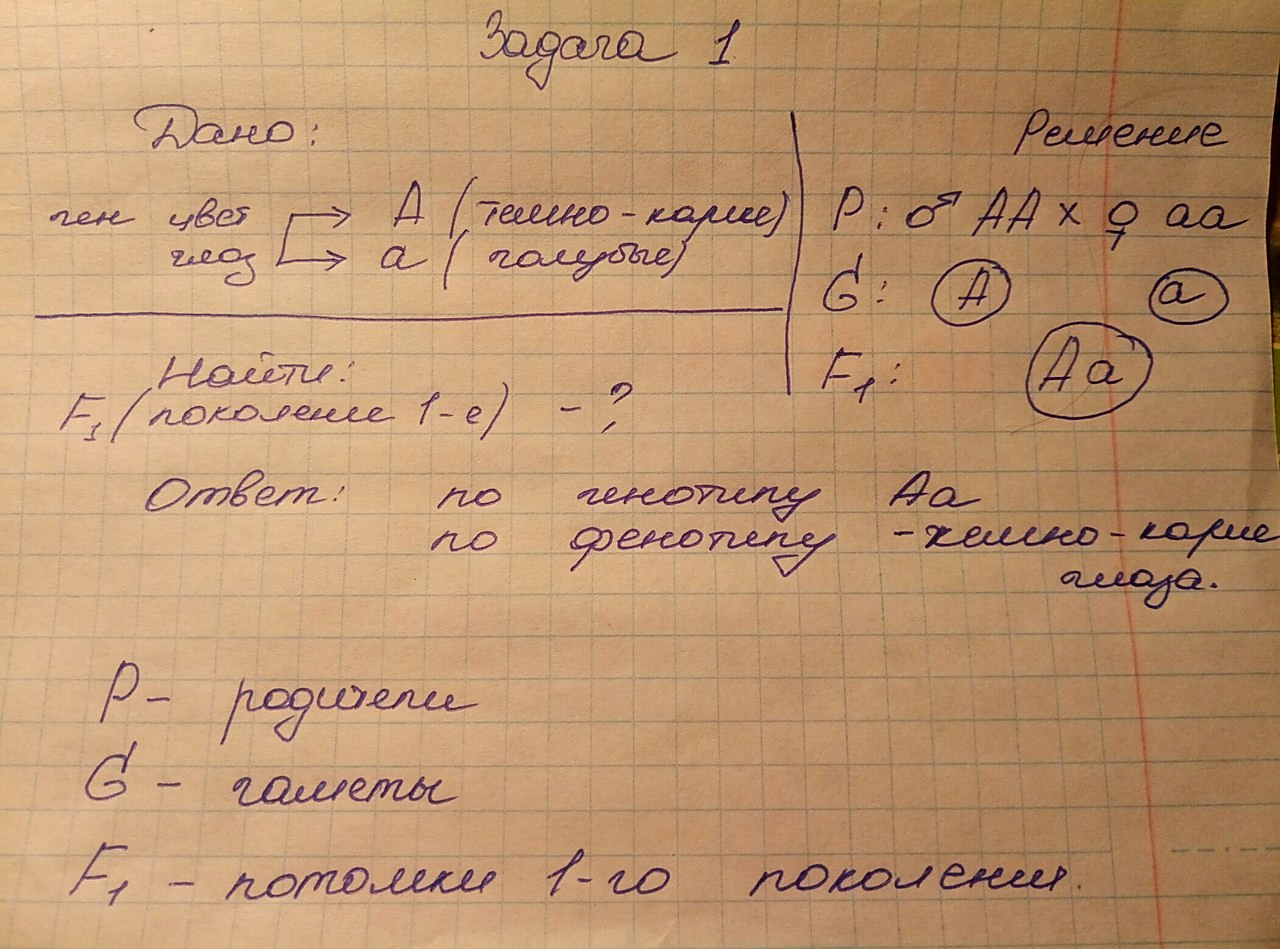 Задача 1
Дано:
ген цвет → А (темно-карие)
глаз → а (голубые)
Найти:
F₁ (поколение 1-е) - ?
Решение
P: ♂ АА x ♀ аа
G: А а
F₁: Аа
Ответ: по генотипу Аа
по фенотипу - темно-карие
глаза.
P – родители
G – гаметы
F₁ – потомки 1-го поколения.